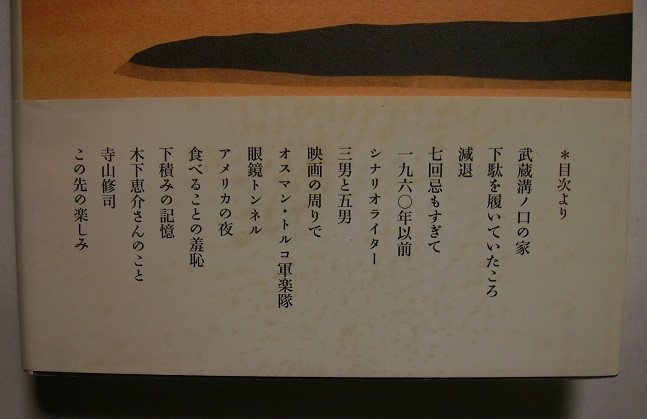 ＊目次より
武蔵溝ノ口の家
下駄を履いていたころ
減退
七回忌もすぎて
一九六〇年以前
シナリオライター
三男と五男
映画の周りで
オスマン・トルコ軍楽隊
眼鏡トンネル
アメリカの夜
食べることの羞恥
下積みの記憶
木下恵介さんのこと
寺山修司
この先の楽しみ